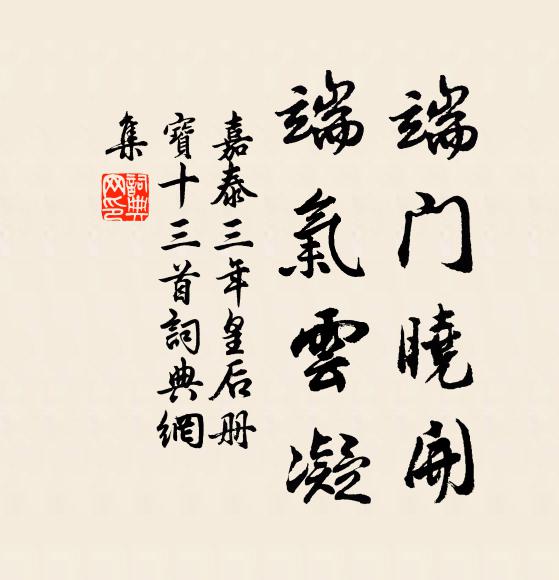 端门曉開
端氣雲凝
嘉泰三年皇后册
寶十三首詞典網
集
詞典
网印